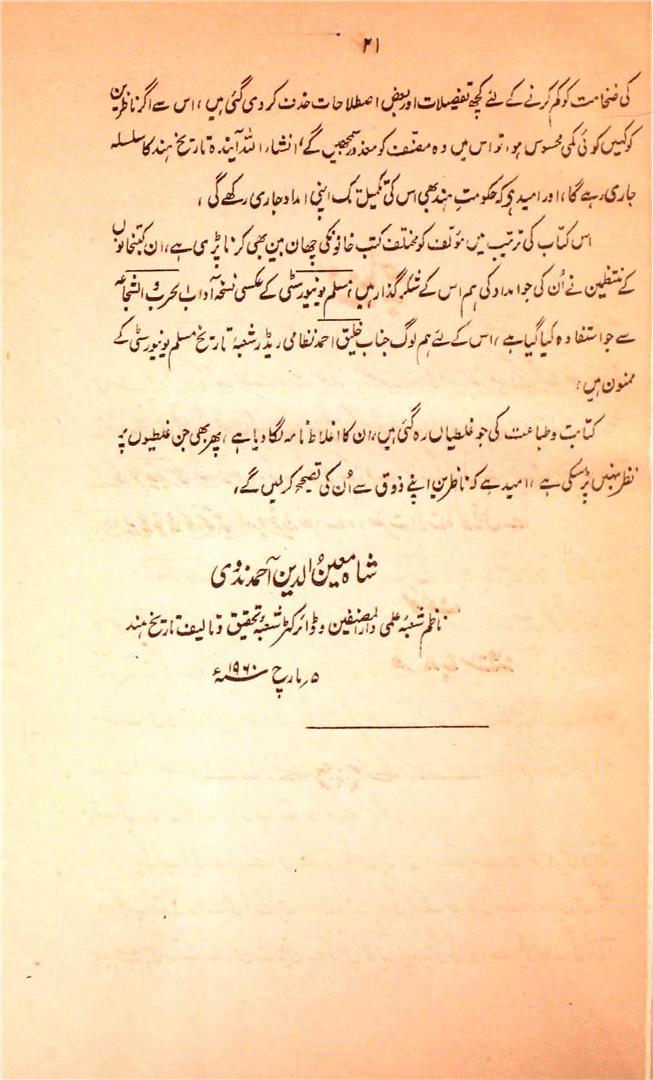 ۲۱
کی ضخامت کو کم کرنے کے لئے کچھ تفصیلات اور بعض اصطلاحات حذف کر دی گئی ہیں، اس سے اگر ناظرین
کو کہیں کوئی کمی محسوس ہو، تو اس میں وہ مصنف کو معذور سمجھیں گے، انشاء اللہ آیندہ تاریخ ہند کا سلسلہ
جاری رہے گا، اور امید ہے کہ حکومتِ ہند بھی اس کی تکمیل تک اپنی امداد جاری رکھے گی،
اس کتاب کی ترتیب میں مؤلف کو مختلف کتب خانوں کی چھان بین بھی کرنا پڑی ہے، ان کتبخانوں
کے منتظمین نے اُن کی جو امداد کی ہم اس کے شکر گذار ہیں، مسلم یونیورسٹی کے عکسی نسخہ آداب الحرب و الشجاعہ
سے جو استفادہ کیا گیا ہے، اس کے لئے ہم لوگ جناب خلیق احمد نظامی ریڈر شعبۂ تاریخ مسلم یونیورسٹی کے
ممنون ہیں؛
کتابت و طباعت کی جو غلطیاں رہ گئی ہیں، ان کا اغلاط نامہ لگا دیا ہے، پھر بھی جن غلطیوں پر
نظر نہیں پڑ سکی ہے، امید ہے کہ ناظرین اپنے ذوق سے اُن کی تصحیح کر لیں گے،
شاہ معین الدین احمد ندوی
ناظم شعبۂ علمی دار المصنفین و ڈائرکٹر شعبۂ تحقیق و تالیف تاریخ ہند
۵؍ مارچ ۱۹۶۰ء